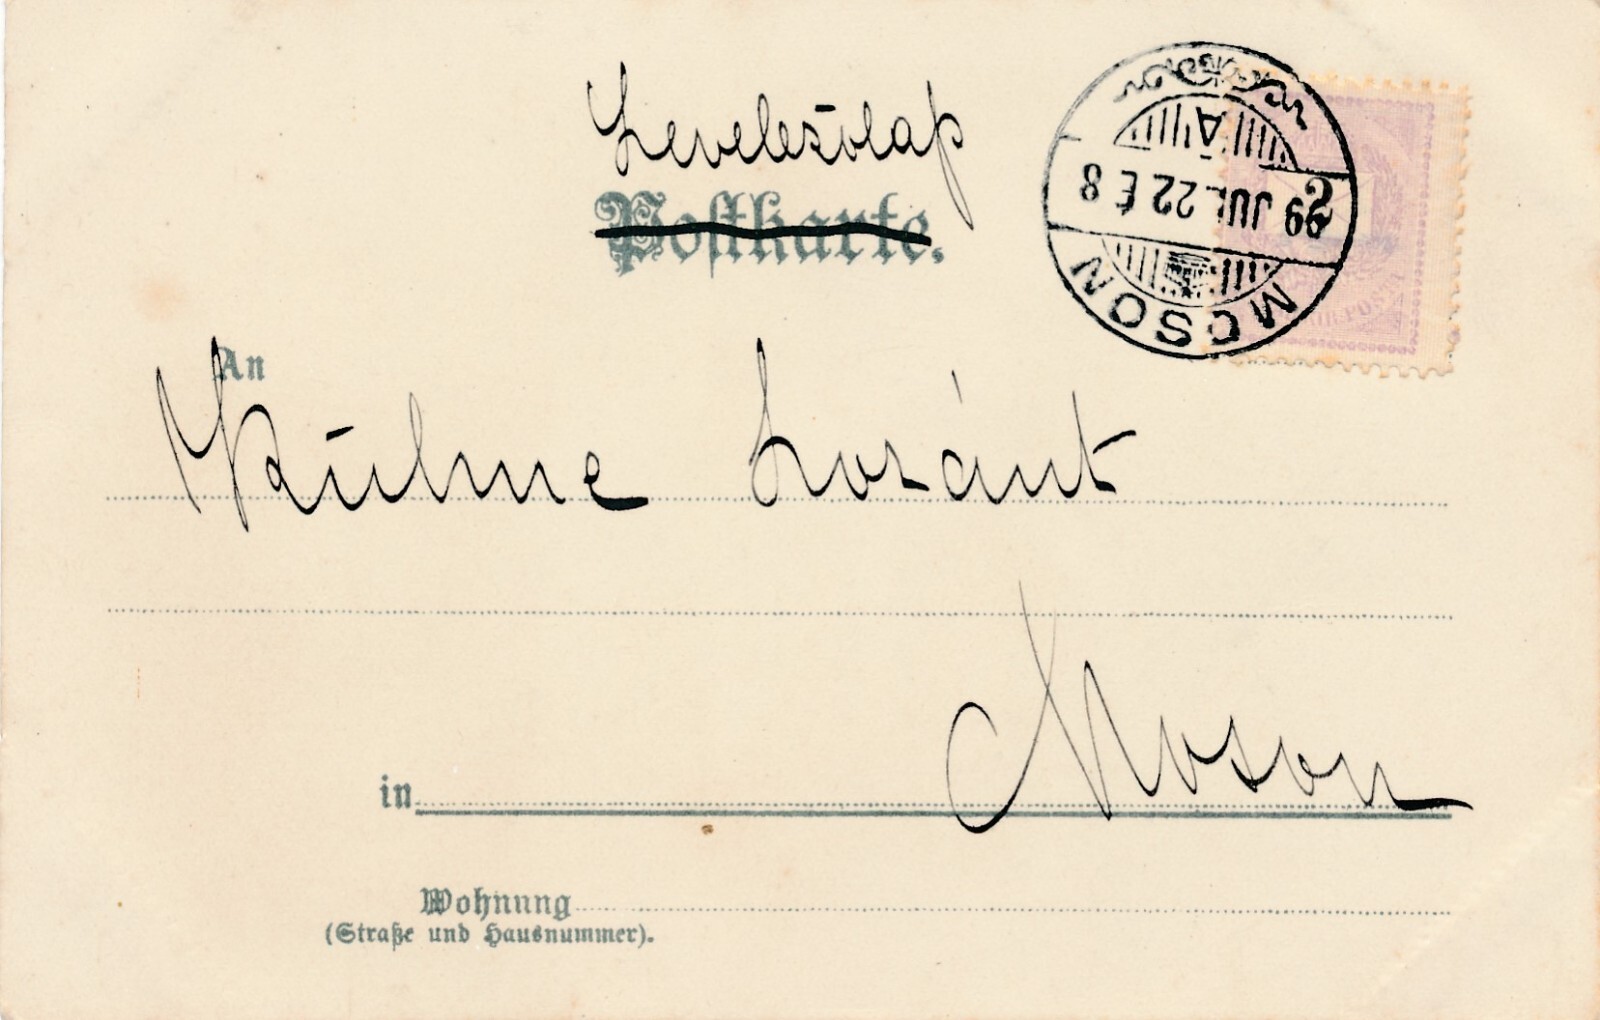 Levelezőlap
Postkarte.
An
Kühne Loránt
in Moson
Wohnung
(Straße und Hausnummer).
MOSON
JUL. 22 É 8
A